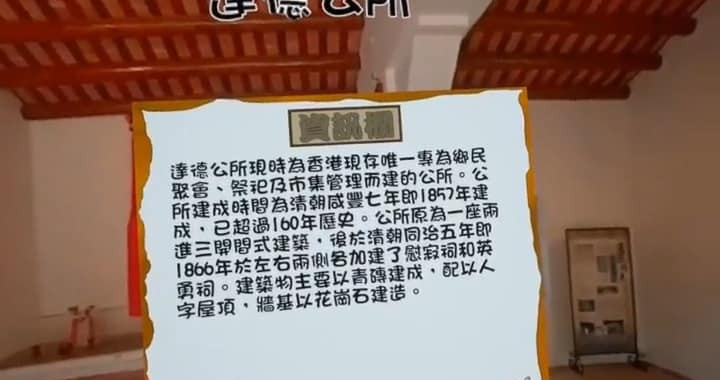 達德公所
資訊欄
達德公所現時為香港現存唯一專為鄉民
聚會、祭祀及市集管理而建的公所。公
所建成時間為清朝咸豐七年即1857年建
成，已超過160年歷史。公所原為一座兩
進三開間式建築，後於清朝同治五年即
1866年於左右兩側各加建了慰寂祠和英
勇祠。建築物主要以青磚建成，配以人
字屋頂，牆基以花崗石建造。